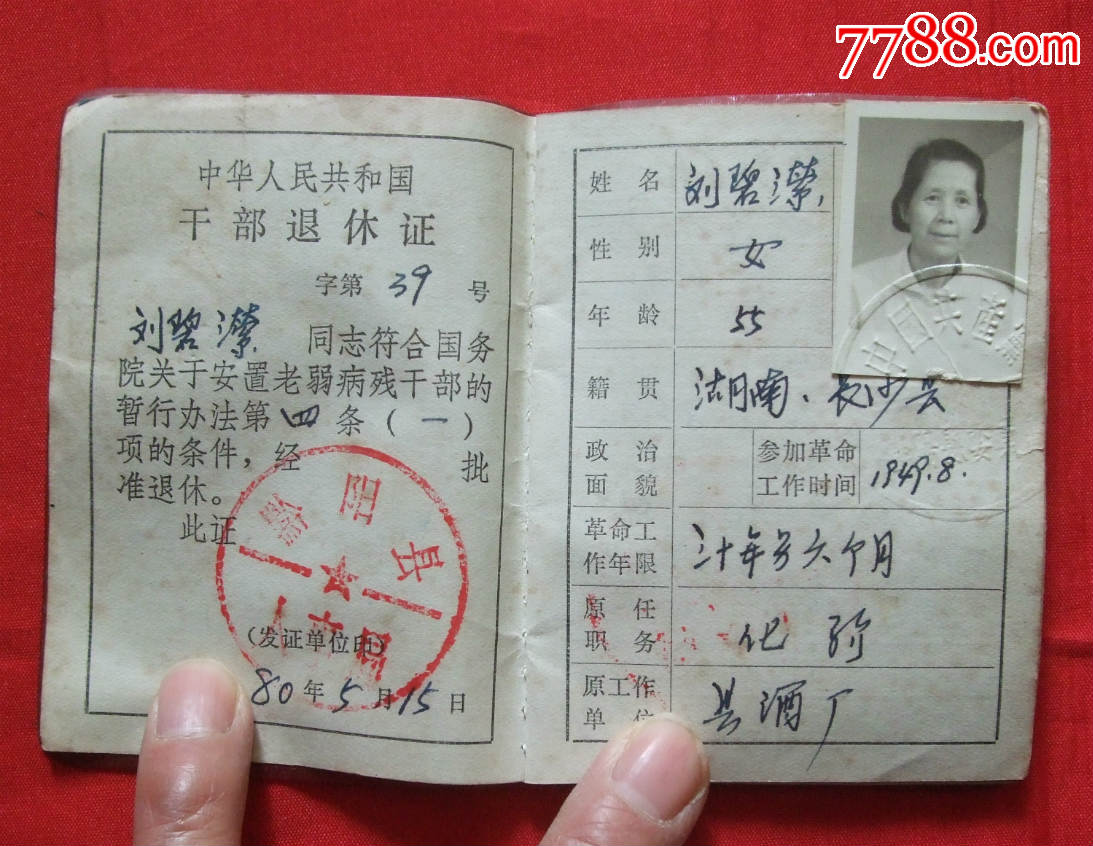 7788.com
中华人民共和国
干部退休证
字第 39 号
刘碧濴 同志符合国务
院关于安置老弱病残干部的
暂行办法第四条(一)
项的条件,经 批
准退休。
此证
县
人事局
(发证单位印)
80年5月15日
姓名 刘碧濴
性别 女
年龄 55
籍贯 湖南、长沙县
政治面貌
参加革命工作时间 1949.8.
革命工作年限 三十年另六个月
原任职务 化验
原工作单位 县酒厂
中国共产